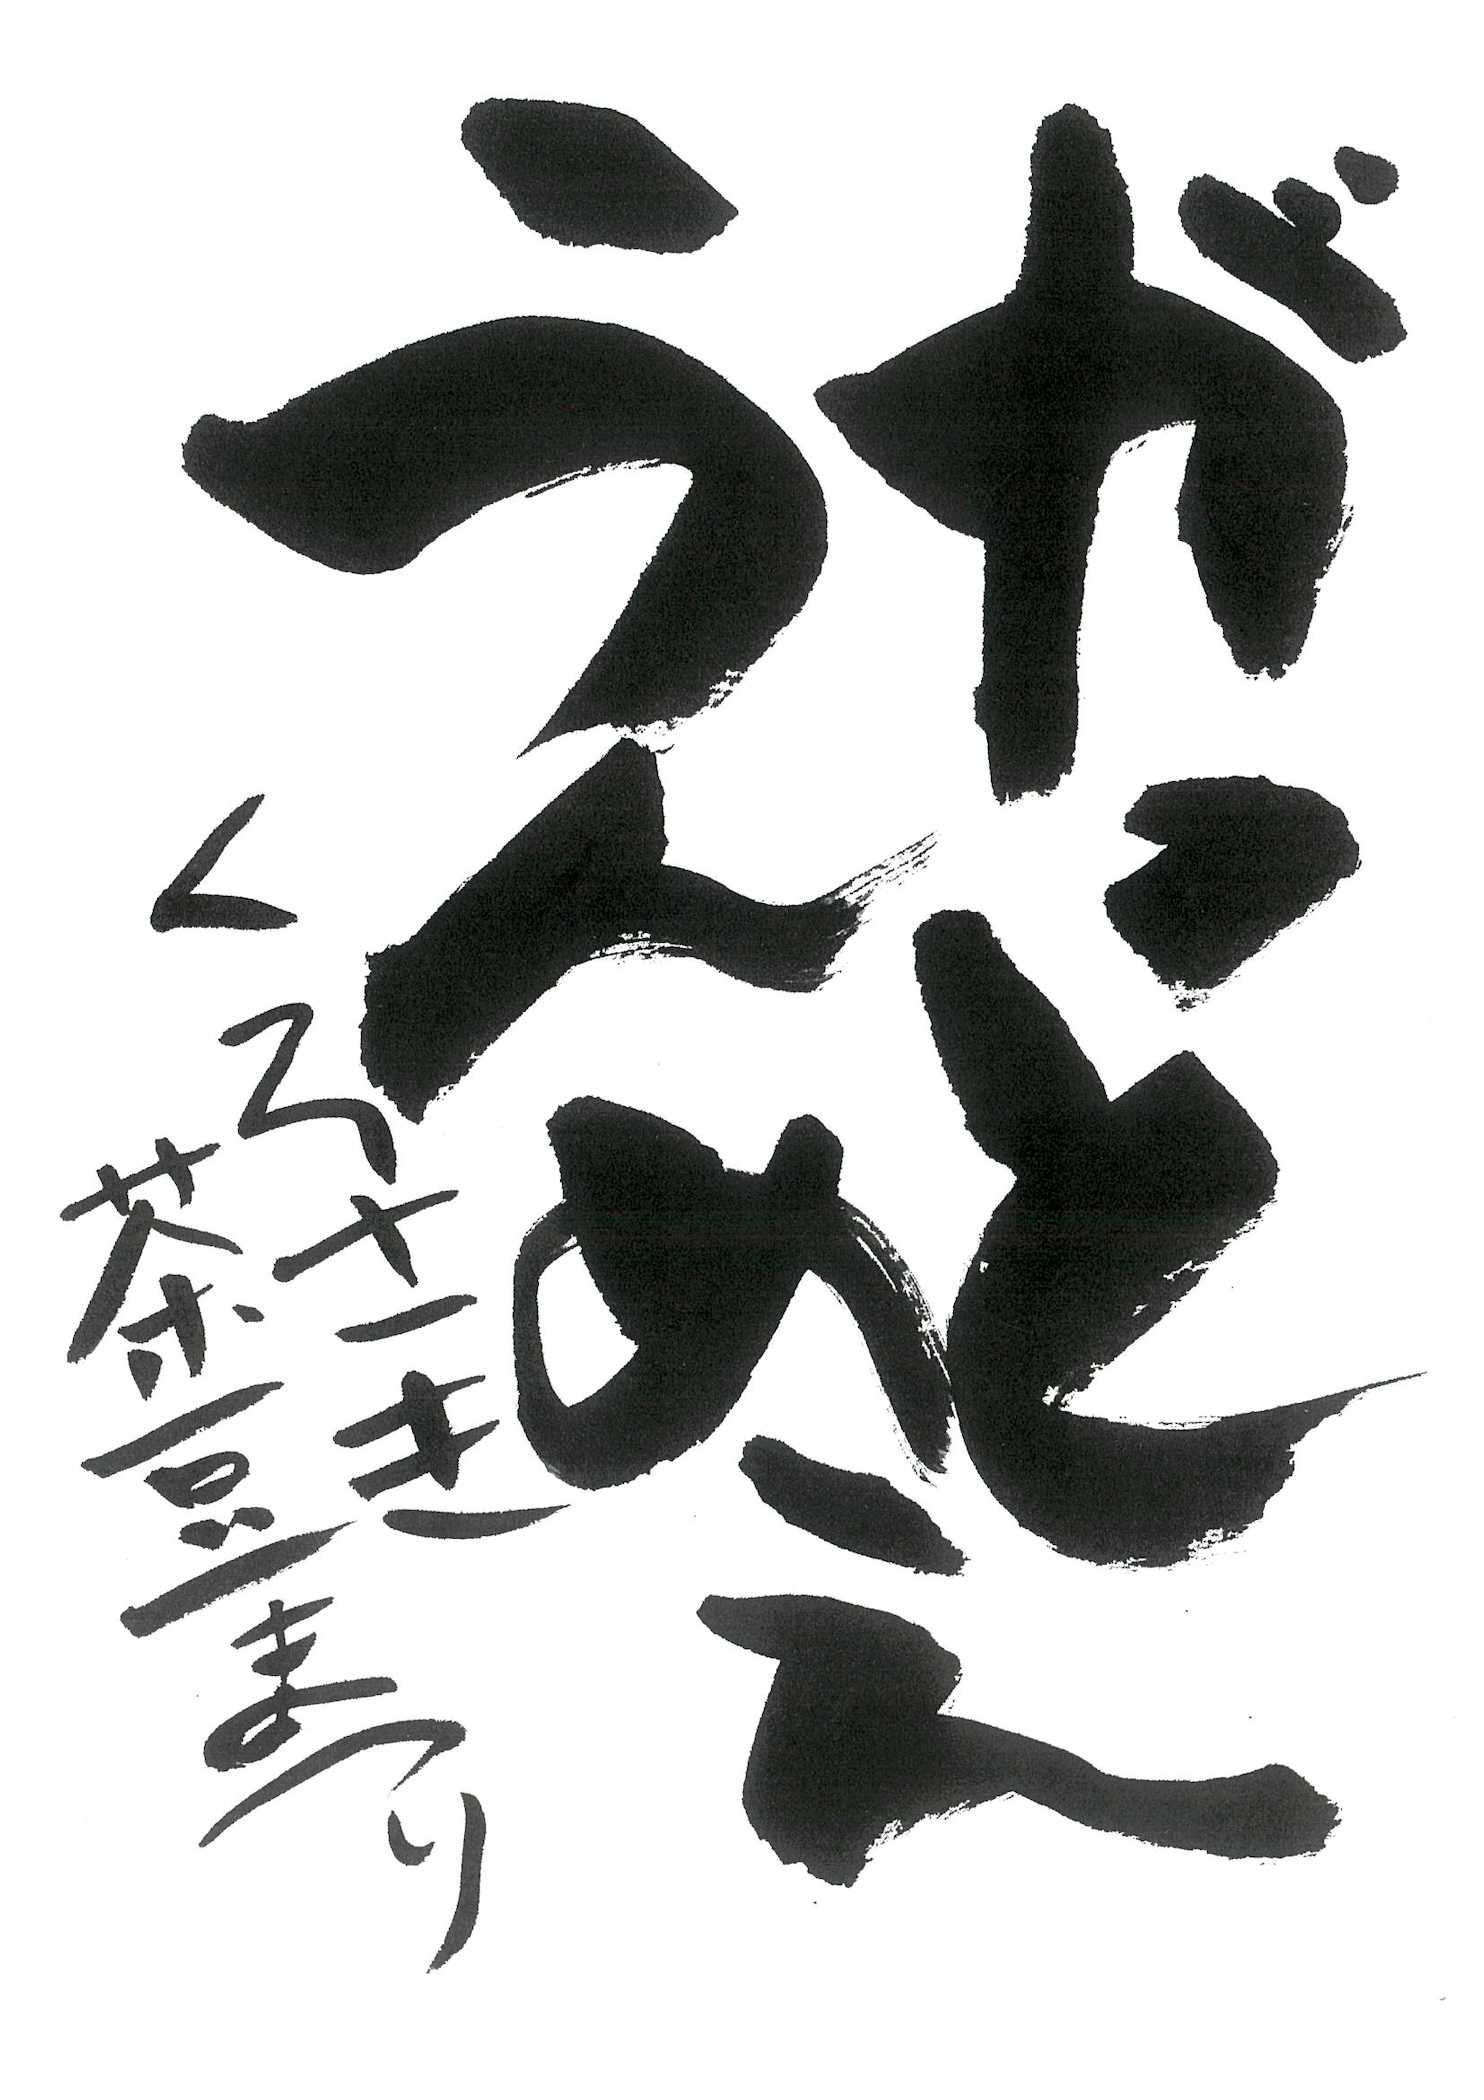 がっと
うんめえ
くろさき
茶豆まつり